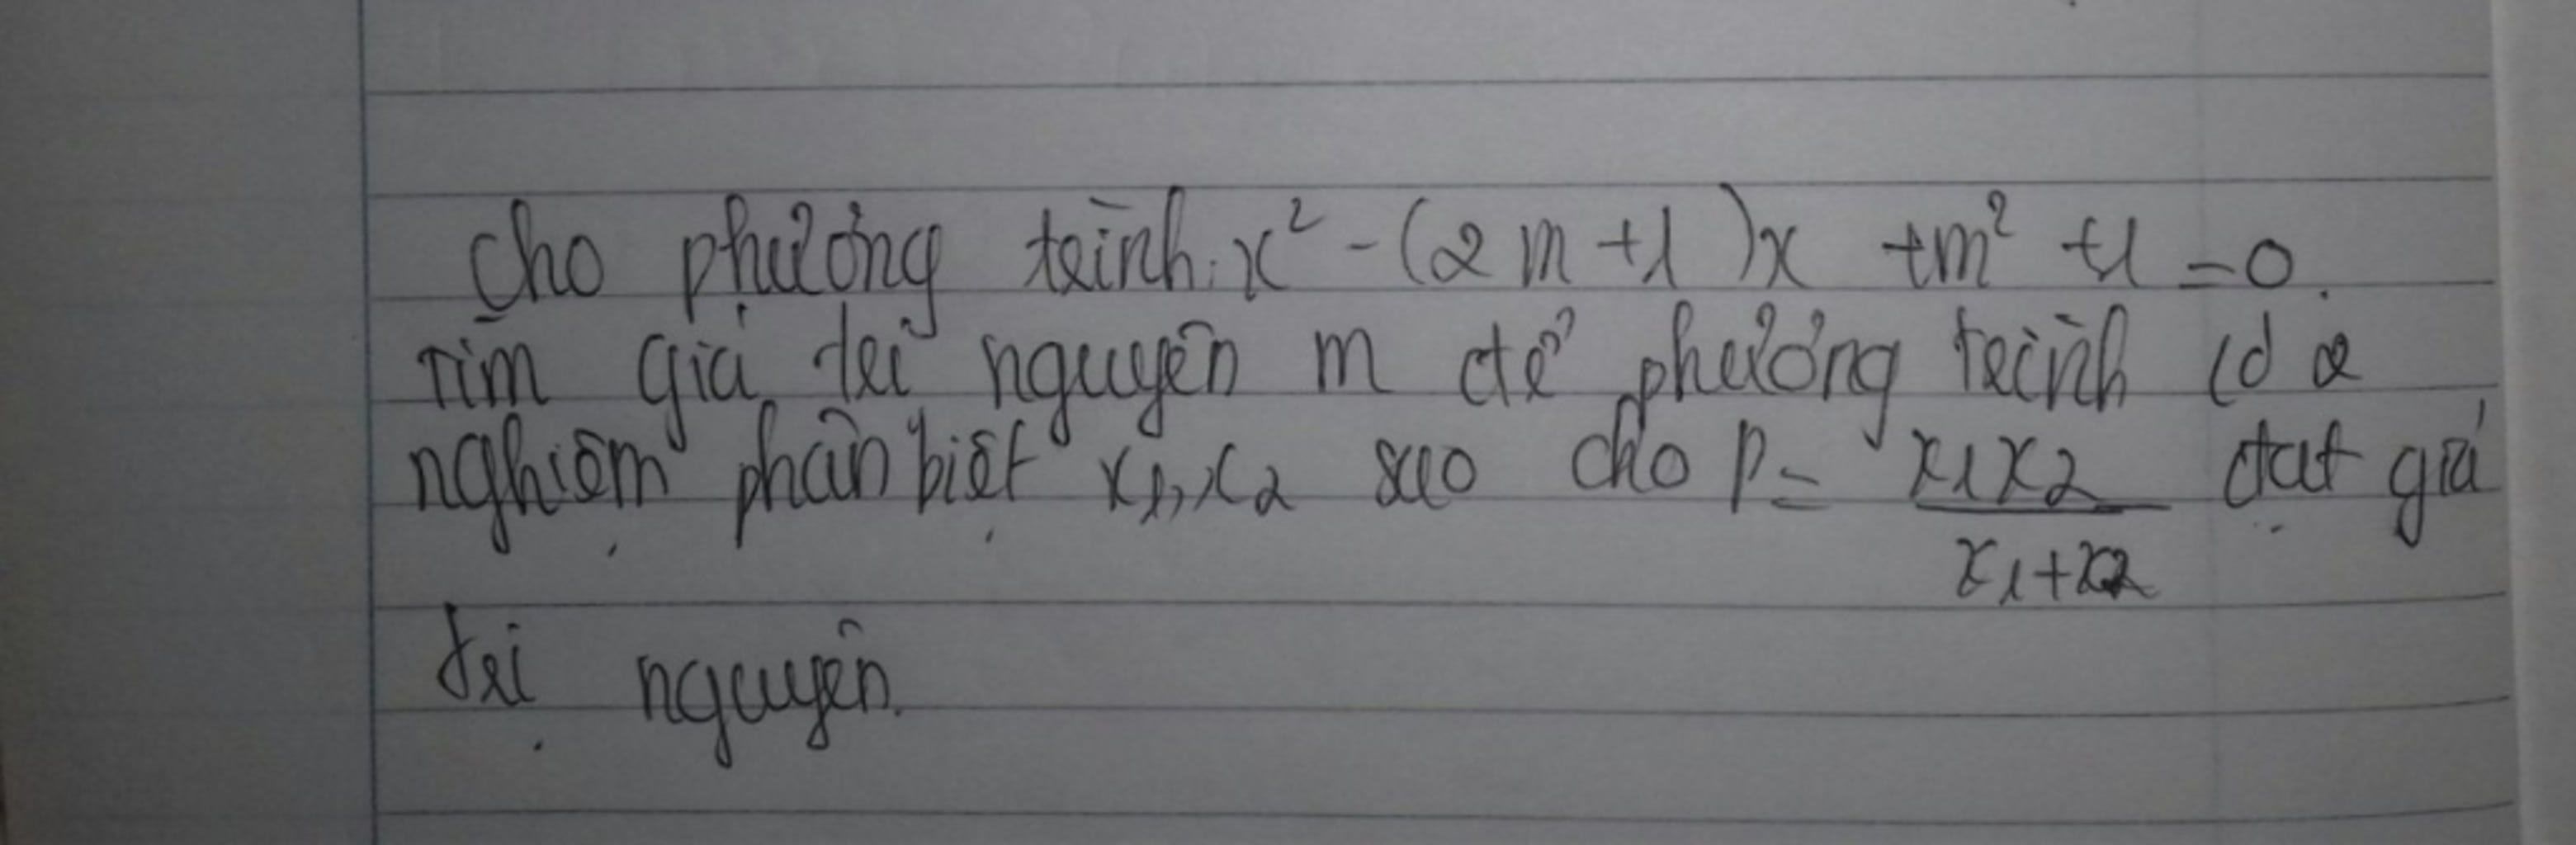 Cho phương trình: x² - (2m+1)x + m² + 1 = 0.
Tìm giá trị nguyên m để phương trình có 2
nghiệm phân biệt x1, x2 sao cho P = \frac{x1x2}{x1+x2} đạt giá
trị nguyên.